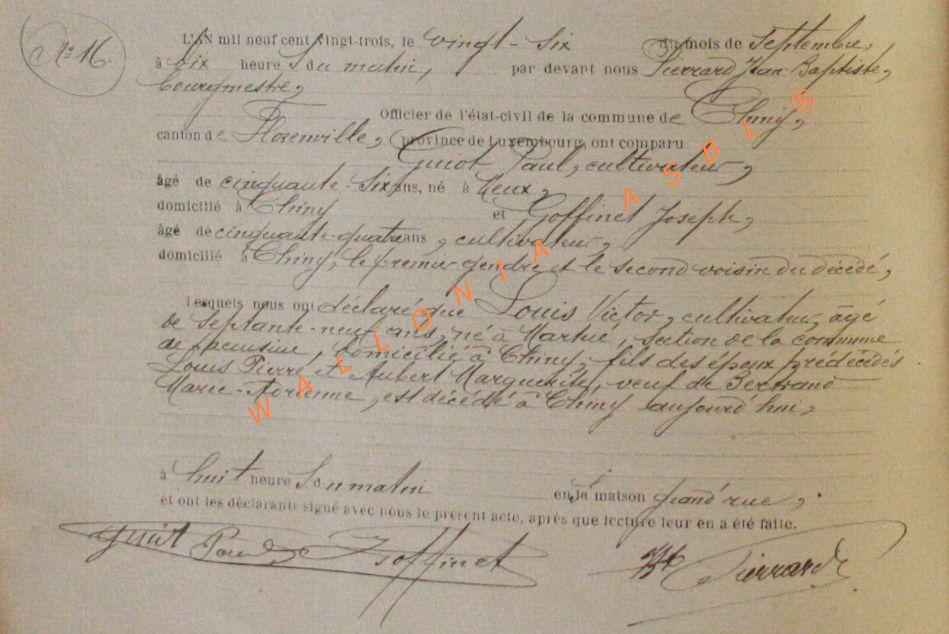 N° 16.
L'AN mil neuf cent vingt-trois, le vingt-six du mois de Septembre,
à dix heures du matin, par devant nous Pierrard Jean-Baptiste,
bourgmestre,
Officier de l'état-civil de la commune de Chiny,
canton de Florenville, province de Luxembourg, ont comparu
Guiot Paul, cultivateur,
âgé de cinquante-six ans, né à
domicilié à Chiny et Goffinet Joseph,
âgé de cinquante-quatre ans, cultivateur,
domicilié à Chiny, le premier gendre et le second voisin du décédé,
lesquels nous ont déclaré que Louis Victor, cultivateur, âgé
de septante-neuf ans, né à Martué, section de la commune
de Lacuisine, domicilié à Chiny, fils des époux prédécédés
Louis Pierre et Aubert Marguerite, veuf de
Marie-, est décédé à Chiny aujourd'hui,
à huit heures du matin en sa maison grand'rue,
et ont les déclarants signé avec nous le présent acte, après que lecture leur en a été faite.
Guiot Paul J Goffinet JB Pierrard
WALLONIA ASBL ®